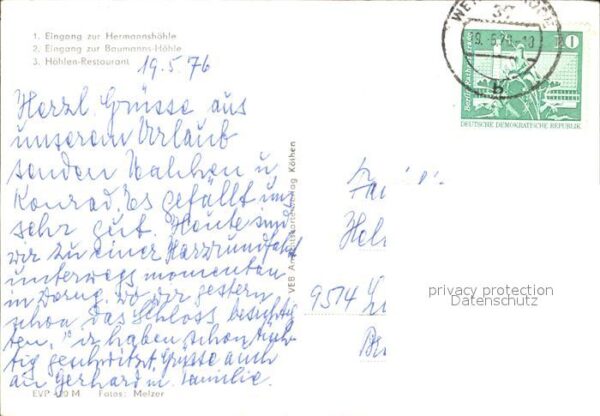 1. Eingang zur Hermannshöhle
2. Eingang zur Baumanns-Höhle
3. Höhlen-Restaurant
19.5.76
Herzl. Grüsse aus
unserem Urlaub
senden u.
Konrad. Es gefällt uns
sehr gut. Heute sind
wir zu einer Harzrundfahrt
unterwegs momentan
in wo wir gestern
schon das Schloss besichtig
ten. Wir haben schon tüch-
tig geschwitzt. Grüsse auch
an Gerhard m. Familie.
EVP M Fotos: Melzer
VEB Köthen
10
DEUTSCHE DEMOKRATISCHE REPUBLIK
b
9514
privacy protection
Datenschutz